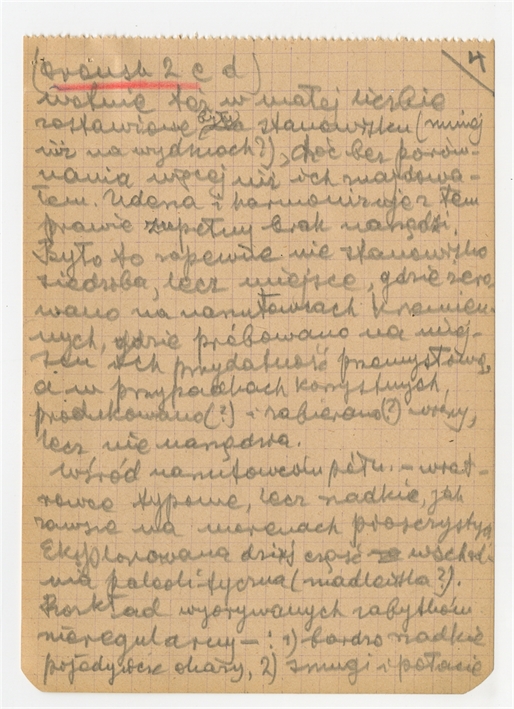 (Arkusz 2 c d) 4
też w małej liczbie
zostawione były stanowisku (mniej
niż na wydmach?), choć bez porów-
nania więcej niż ich znajdowa-
łem. Uderza i harmonizuje z tem
prawie zupełny brak narzędzi.
Było to zapewne nie stanowisko
siedziba, lecz miejsce, gdzie
wano na narzutowcach krzemien-
nych, gdzie próbowano na miej-
scu ich przydatność przemysłową,
a w przypadkach korzystnych
produkowano(?) i zabierano(?) wióry,
lecz nie narzędzia.
Wśród narzutowców półn. –
typowe, lecz rzadkie, jak
zawsze na morenach
Eksplorowana dziś część wschod-
nia paleolityczna (madleńska?).
Rozkład wyorywanych zabytków
nieregularny – : 1) bardzo rzadkie
pojedyńcze okazy, 2) smugi i połacie